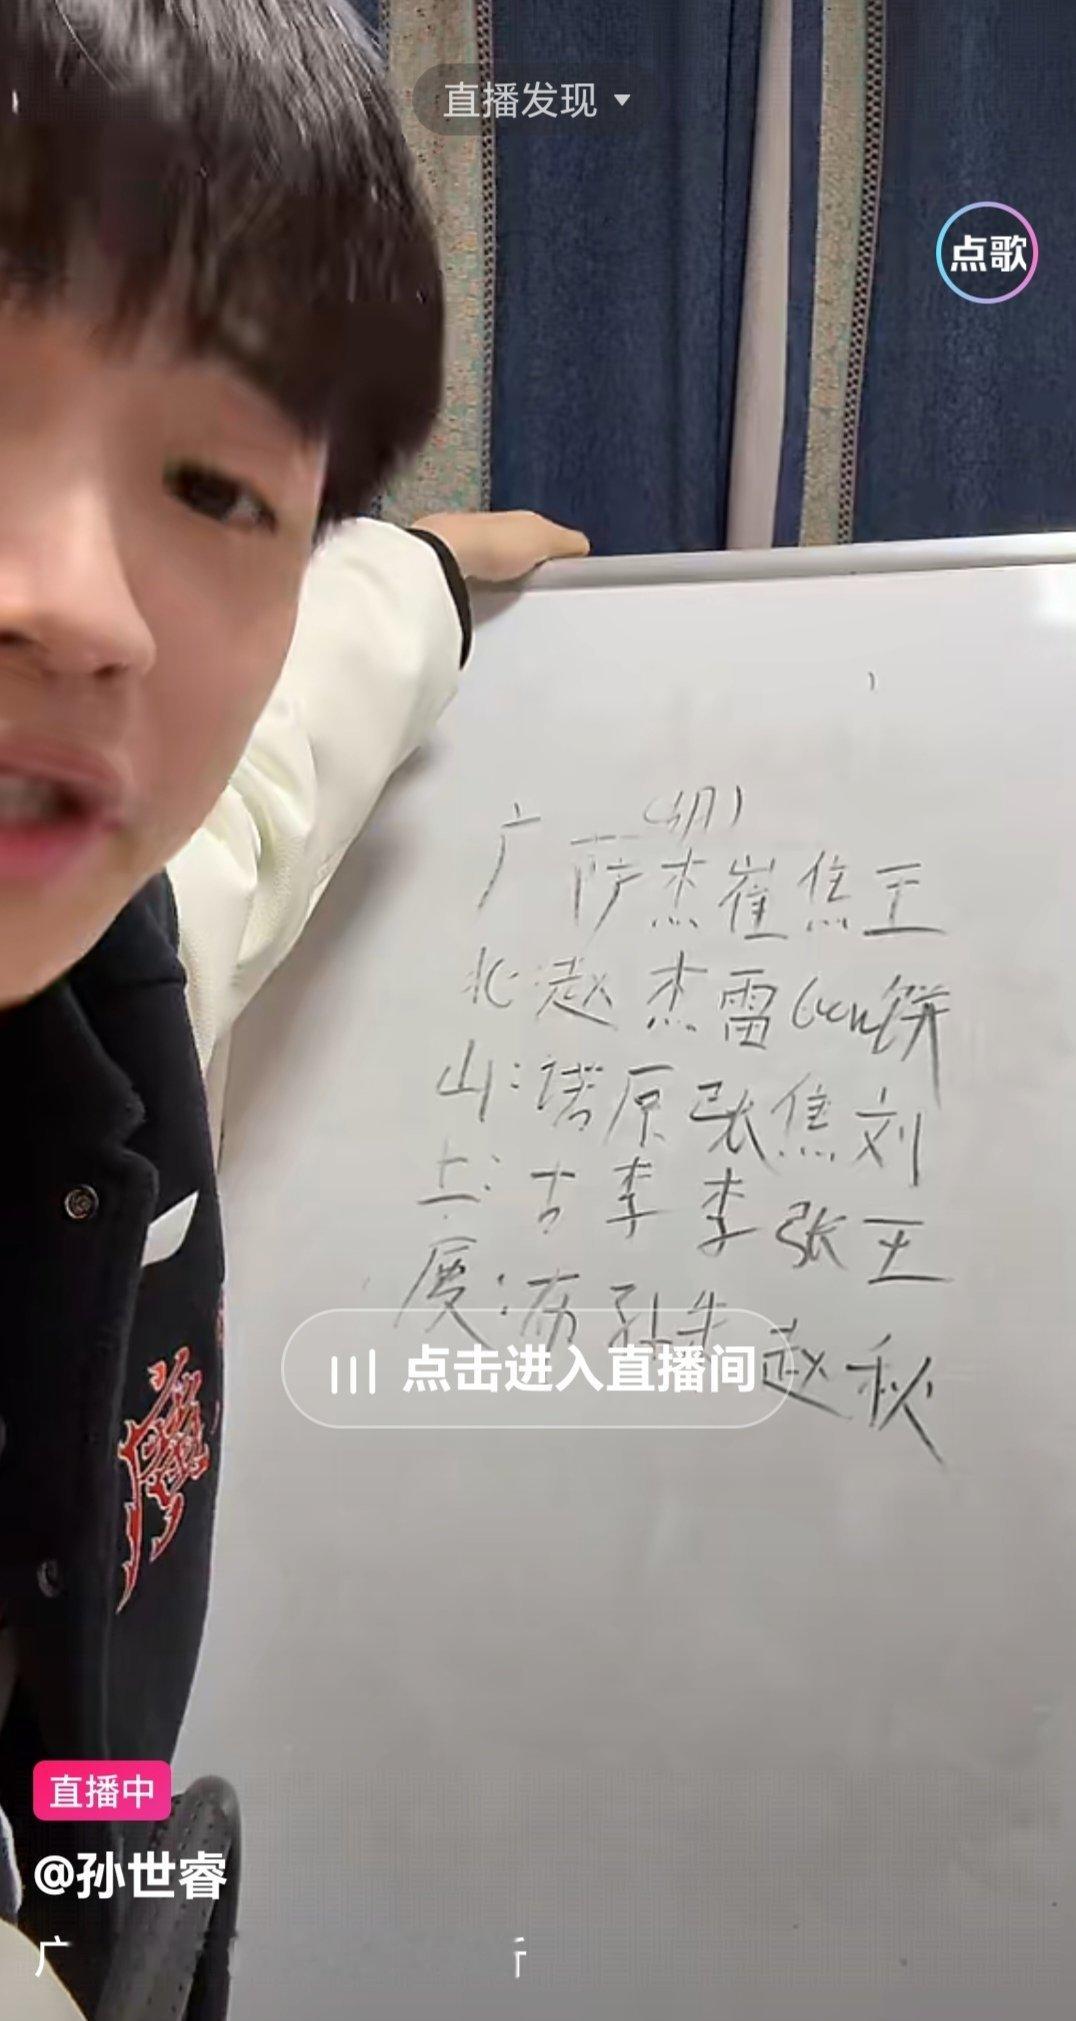 直播发现
点歌
广 萨杰崔焦王
北:赵 杰雷Gen饼
山:诺原张焦刘
土:古李李张王
厦:布孙朱赵秋
点击进入直播间
直播中
@孙世睿
广